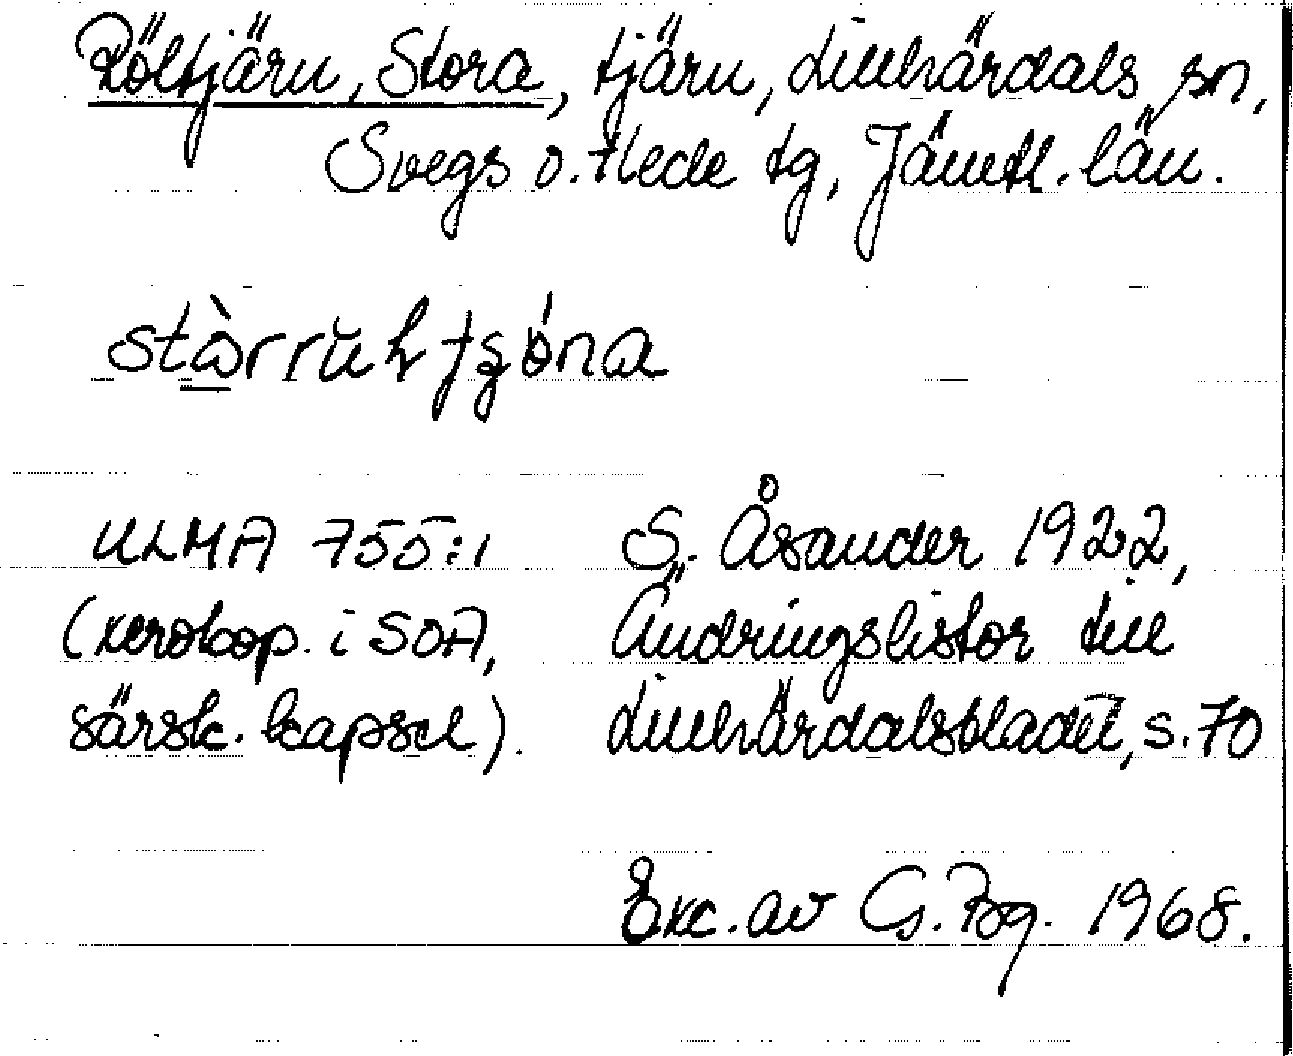 Röltjärn, Stora, tjärn, Lillhärdals sn,
Svegs o. Hede tg, Jämtl. län.
ULMA 755:1 S. Åsander 1922,
(xerokop. i SOA, Ändringslistor till
särsk. kapsel). Lillhärdalsbladet, s. 70
Exc. av G. Bg. 1968.